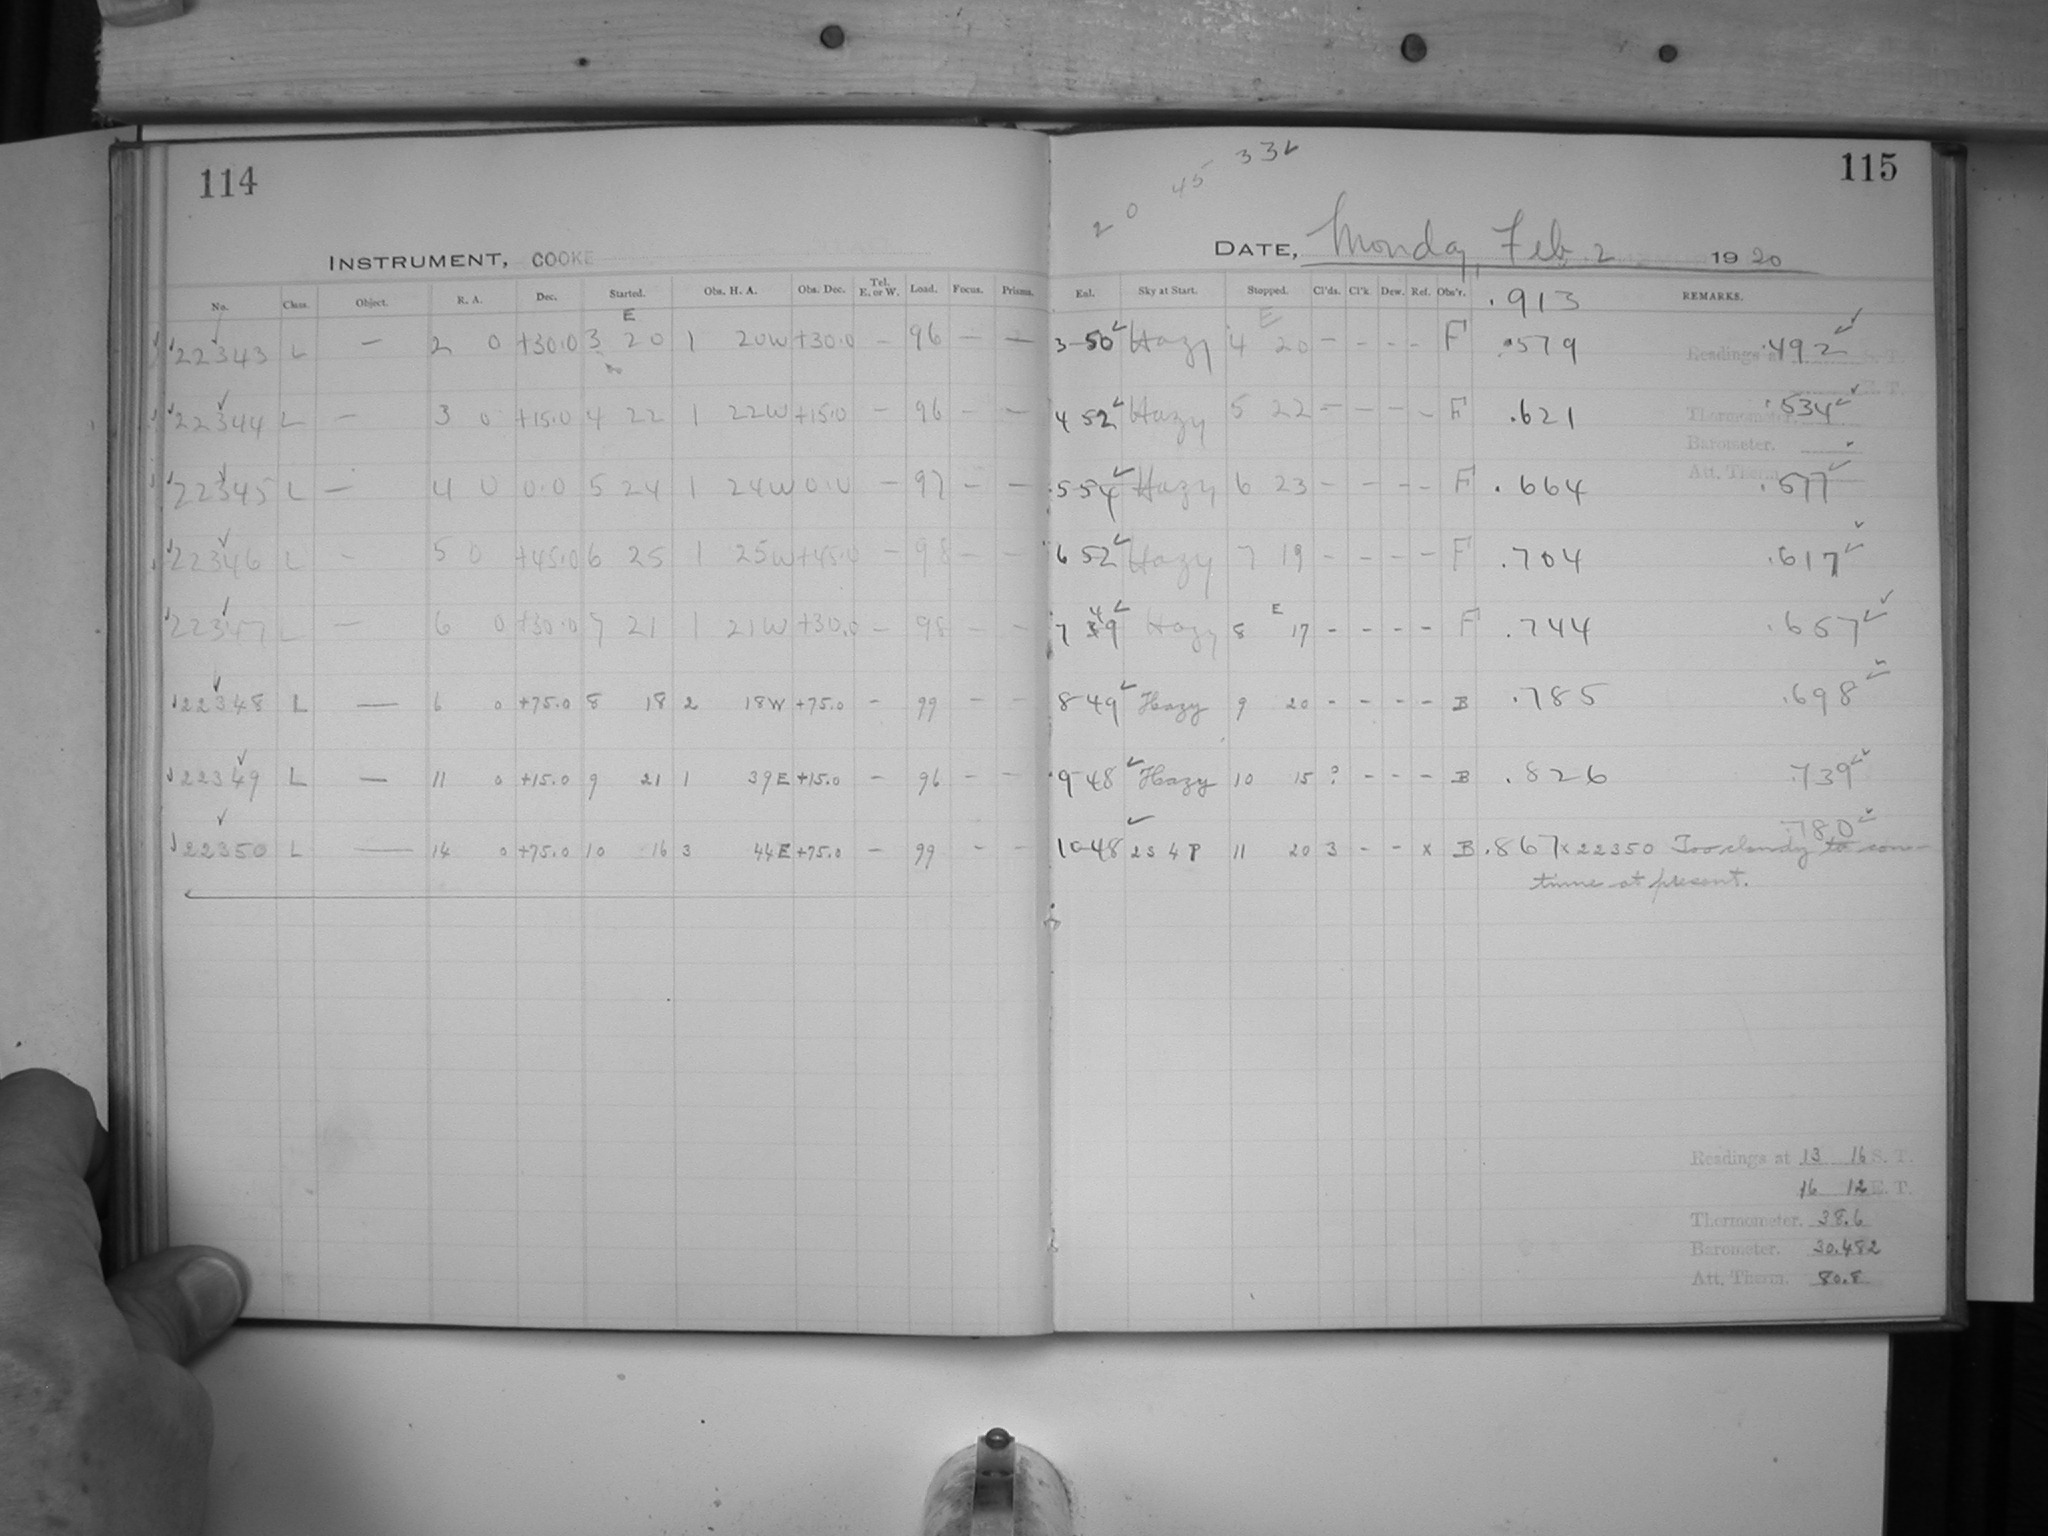 114
INSTRUMENT, COOKE
No. Class. Object. R. A. Dec. Started. Obs. H. A. Obs. Dec. Tel. E. or W. Load. Focus. Prisms.
E
22343 L — 2 0 +30.0 3 20 1 20W +30.0 - 96 — —
22344 L — 3 0 +15.0 4 22 1 22W +15.0 - 96 - —
22345 L — 4 0 0.0 5 24 1 24W 0.0 — 97 - —
22346 L - 5 0 +45.0 6 25 1 25W +45.0 - 98 - -
22347 L — 6 0 +30.0 7 21 1 21W +30.0 - 98 - -
22348 L — 6 0 +75.0 8 18 2 18W +75.0 - 99 - -
22349 L — 11 0 +15.0 9 21 1 39E +15.0 - 96 - -
22350 L — 14 0 +75.0 10 16 3 44E +75.0 - 99 - -
115
2 0 45 33 ✓
DATE, Monday, Feb. 2 1920
Exl. Sky at Start. Stopped. Cl'ds. Cl'k. Dew. Ref. Obs'r. .913 REMARKS.
E
3-50 ✓ Hazy 4 20 - - - - F .579 .492 ✓
Readings at S. T.
E. T.
4 52 ✓ Hazy 5 22 - - - - F .621 .534 ✓
Thermometer.
Barometer.
Att. Therm.
5-54 ✓ Hazy 6 23 - - - - F .664 .577 ✓
6 52 ✓ Hazy 7 19 - - - - F .704 .617 ✓
4 E
7 39 ✓ Hazy 8 17 - - - - F .744 .657 ✓
8-49 ✓ Hazy 9 20 - - - - B .785 .698 ✓
9-48 ✓ Hazy 10 15 ? - - - B .826 .739 ✓
.780 ✓
10-48 ✓ 2 3 4 P 11 20 3 - - x B .867 x 22350 Too cloudy to con-
tinue at present.
Readings at 13 16 S. T.
16 12 E. T.
Thermometer. 38.6
Barometer. 30.482
Att. Therm. 80.8